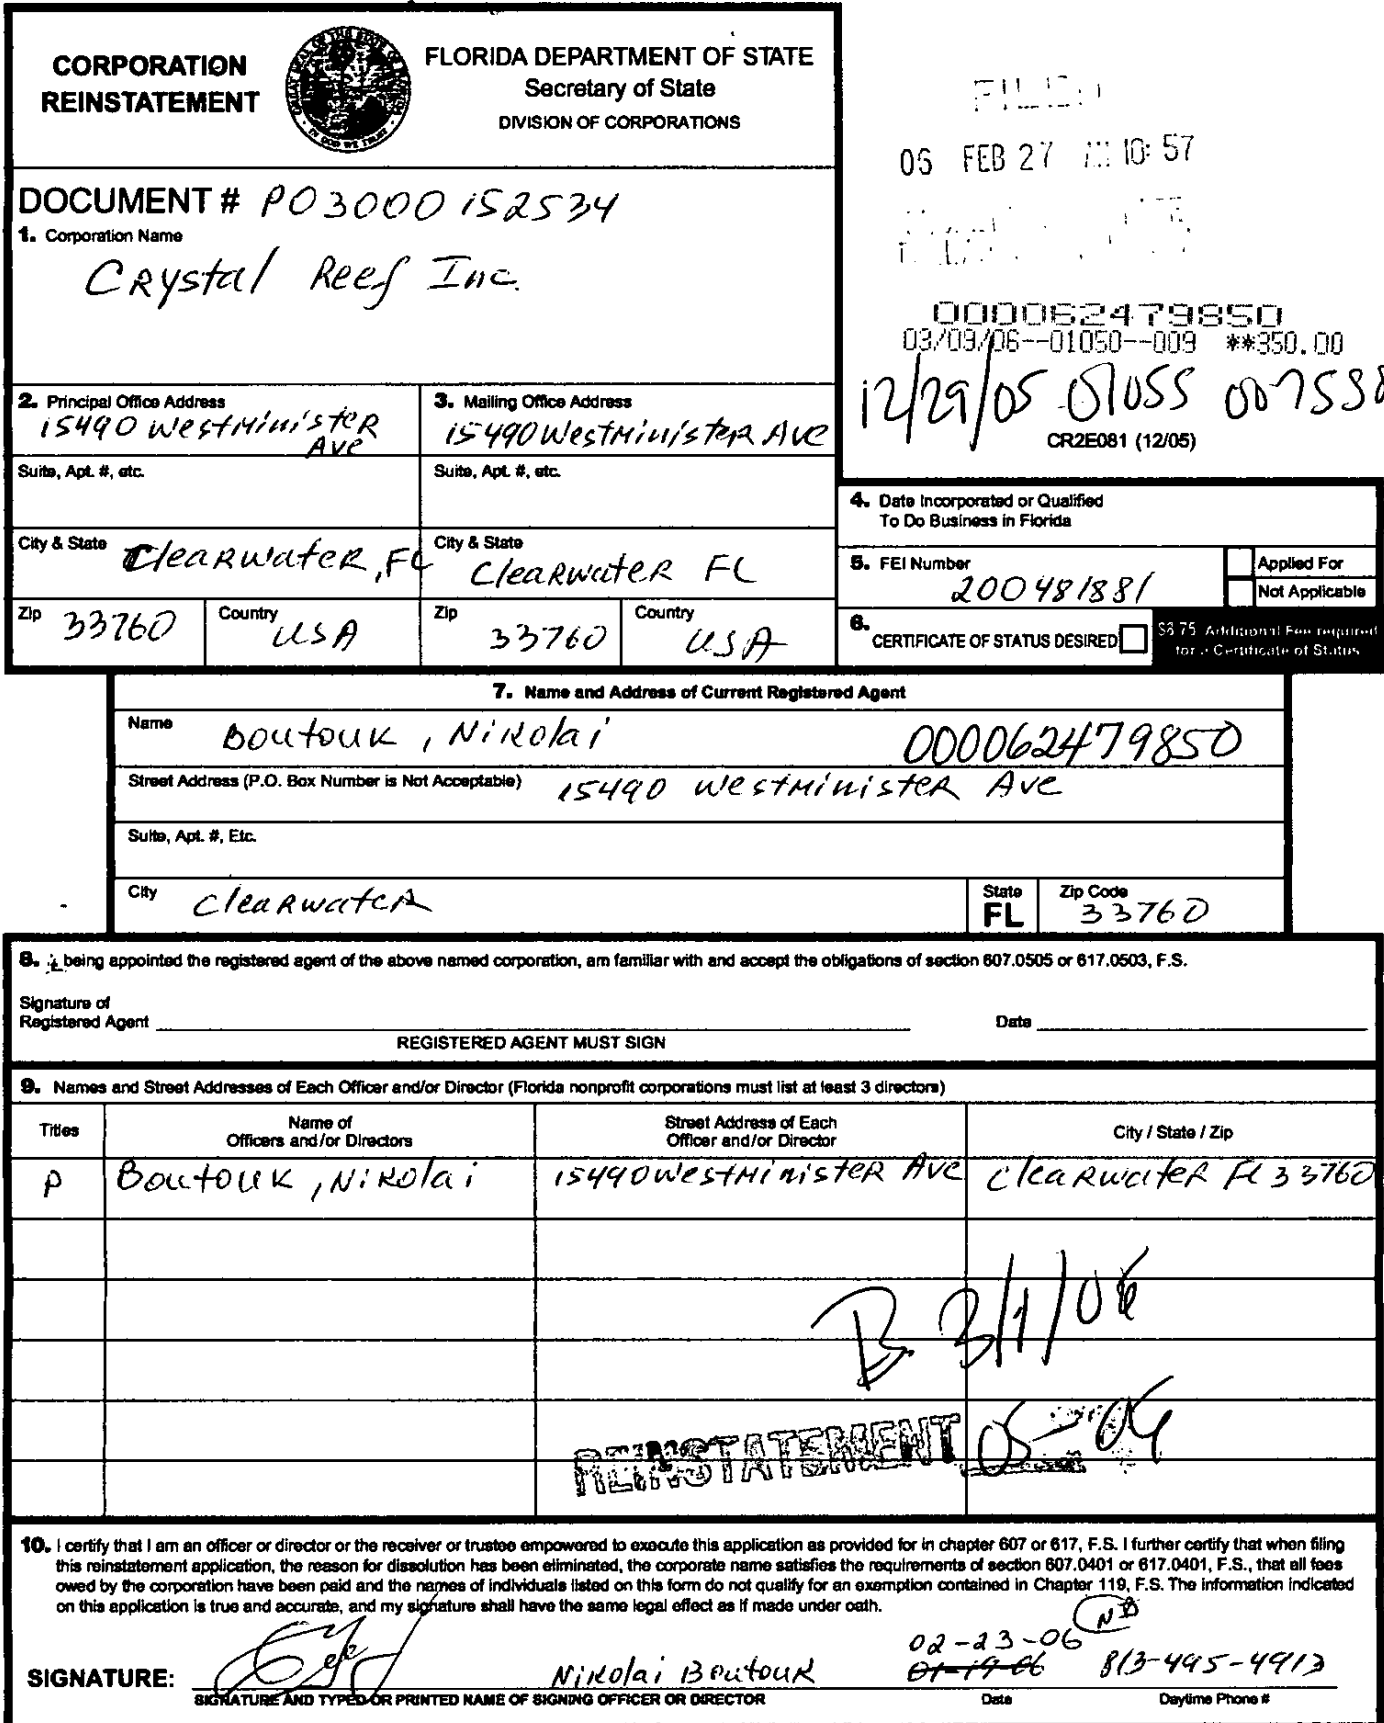 CORPORATION
REINSTATEMENT
FLORIDA DEPARTMENT OF STATE
Secretary of State
DIVISION OF CORPORATIONS
FILED
06 FEB 27 10:57
DOCUMENT # P03000152534
1. Corporation Name
Crystal Reef Inc.
000062479850
03/09/06--01050--009 **350.00
12/29/05 01055 007558
CR2E081 (12/05)
2. Principal Office Address
15490 Westminister
Ave
3. Mailing Office Address
15490 Westminister Ave
Suite, Apt. #, etc.
Suite, Apt. #, etc.
City & State
Clearwater, FL
City & State
Clearwater FL
Zip 33760
Country
USA
Zip
33760
Country
USA
4. Date Incorporated or Qualified
To Do Business in Florida
5. FEI Number
200481881
Applied For
Not Applicable
6.
CERTIFICATE OF STATUS DESIRED
$8.75 Additional Fee required
for a Certificate of Status
7. Name and Address of Current Registered Agent
Name
Boutouk, Nikolai
000062479850
Street Address (P.O. Box Number is Not Acceptable)
15490 Westminister Ave
Suite, Apt. #, Etc.
City
Clearwater
State
FL
Zip Code
33760
8. I, being appointed the registered agent of the above named corporation, am familiar with and accept the obligations of section 607.0505 or 617.0503, F.S.
Signature of
Registered Agent
Date
REGISTERED AGENT MUST SIGN
9. Names and Street Addresses of Each Officer and/or Director (Florida nonprofit corporations must list at least 3 directors)
Titles
Name of
Officers and/or Directors
Street Address of Each
Officer and/or Director
City / State / Zip
P
Boutouk, Nikolai
15490 Westminister Ave
Clearwater FL 33760
B 3/1/06
REINSTATEMENT 05-06
10. I certify that I am an officer or director or the receiver or trustee empowered to execute this application as provided for in chapter 607 or 617, F.S. I further certify that when filing
this reinstatement application, the reason for dissolution has been eliminated, the corporate name satisfies the requirements of section 607.0401 or 617.0401, F.S., that all fees
owed by the corporation have been paid and the names of individuals listed on this form do not qualify for an exemption contained in Chapter 119, F.S. The information indicated
on this application is true and accurate, and my signature shall have the same legal effect as if made under oath.
NB
02-23-06
SIGNATURE:
Nikolai Boutouk
01-19-06
813-495-4913
SIGNATURE AND TYPED OR PRINTED NAME OF SIGNING OFFICER OR DIRECTOR
Date
Daytime Phone #